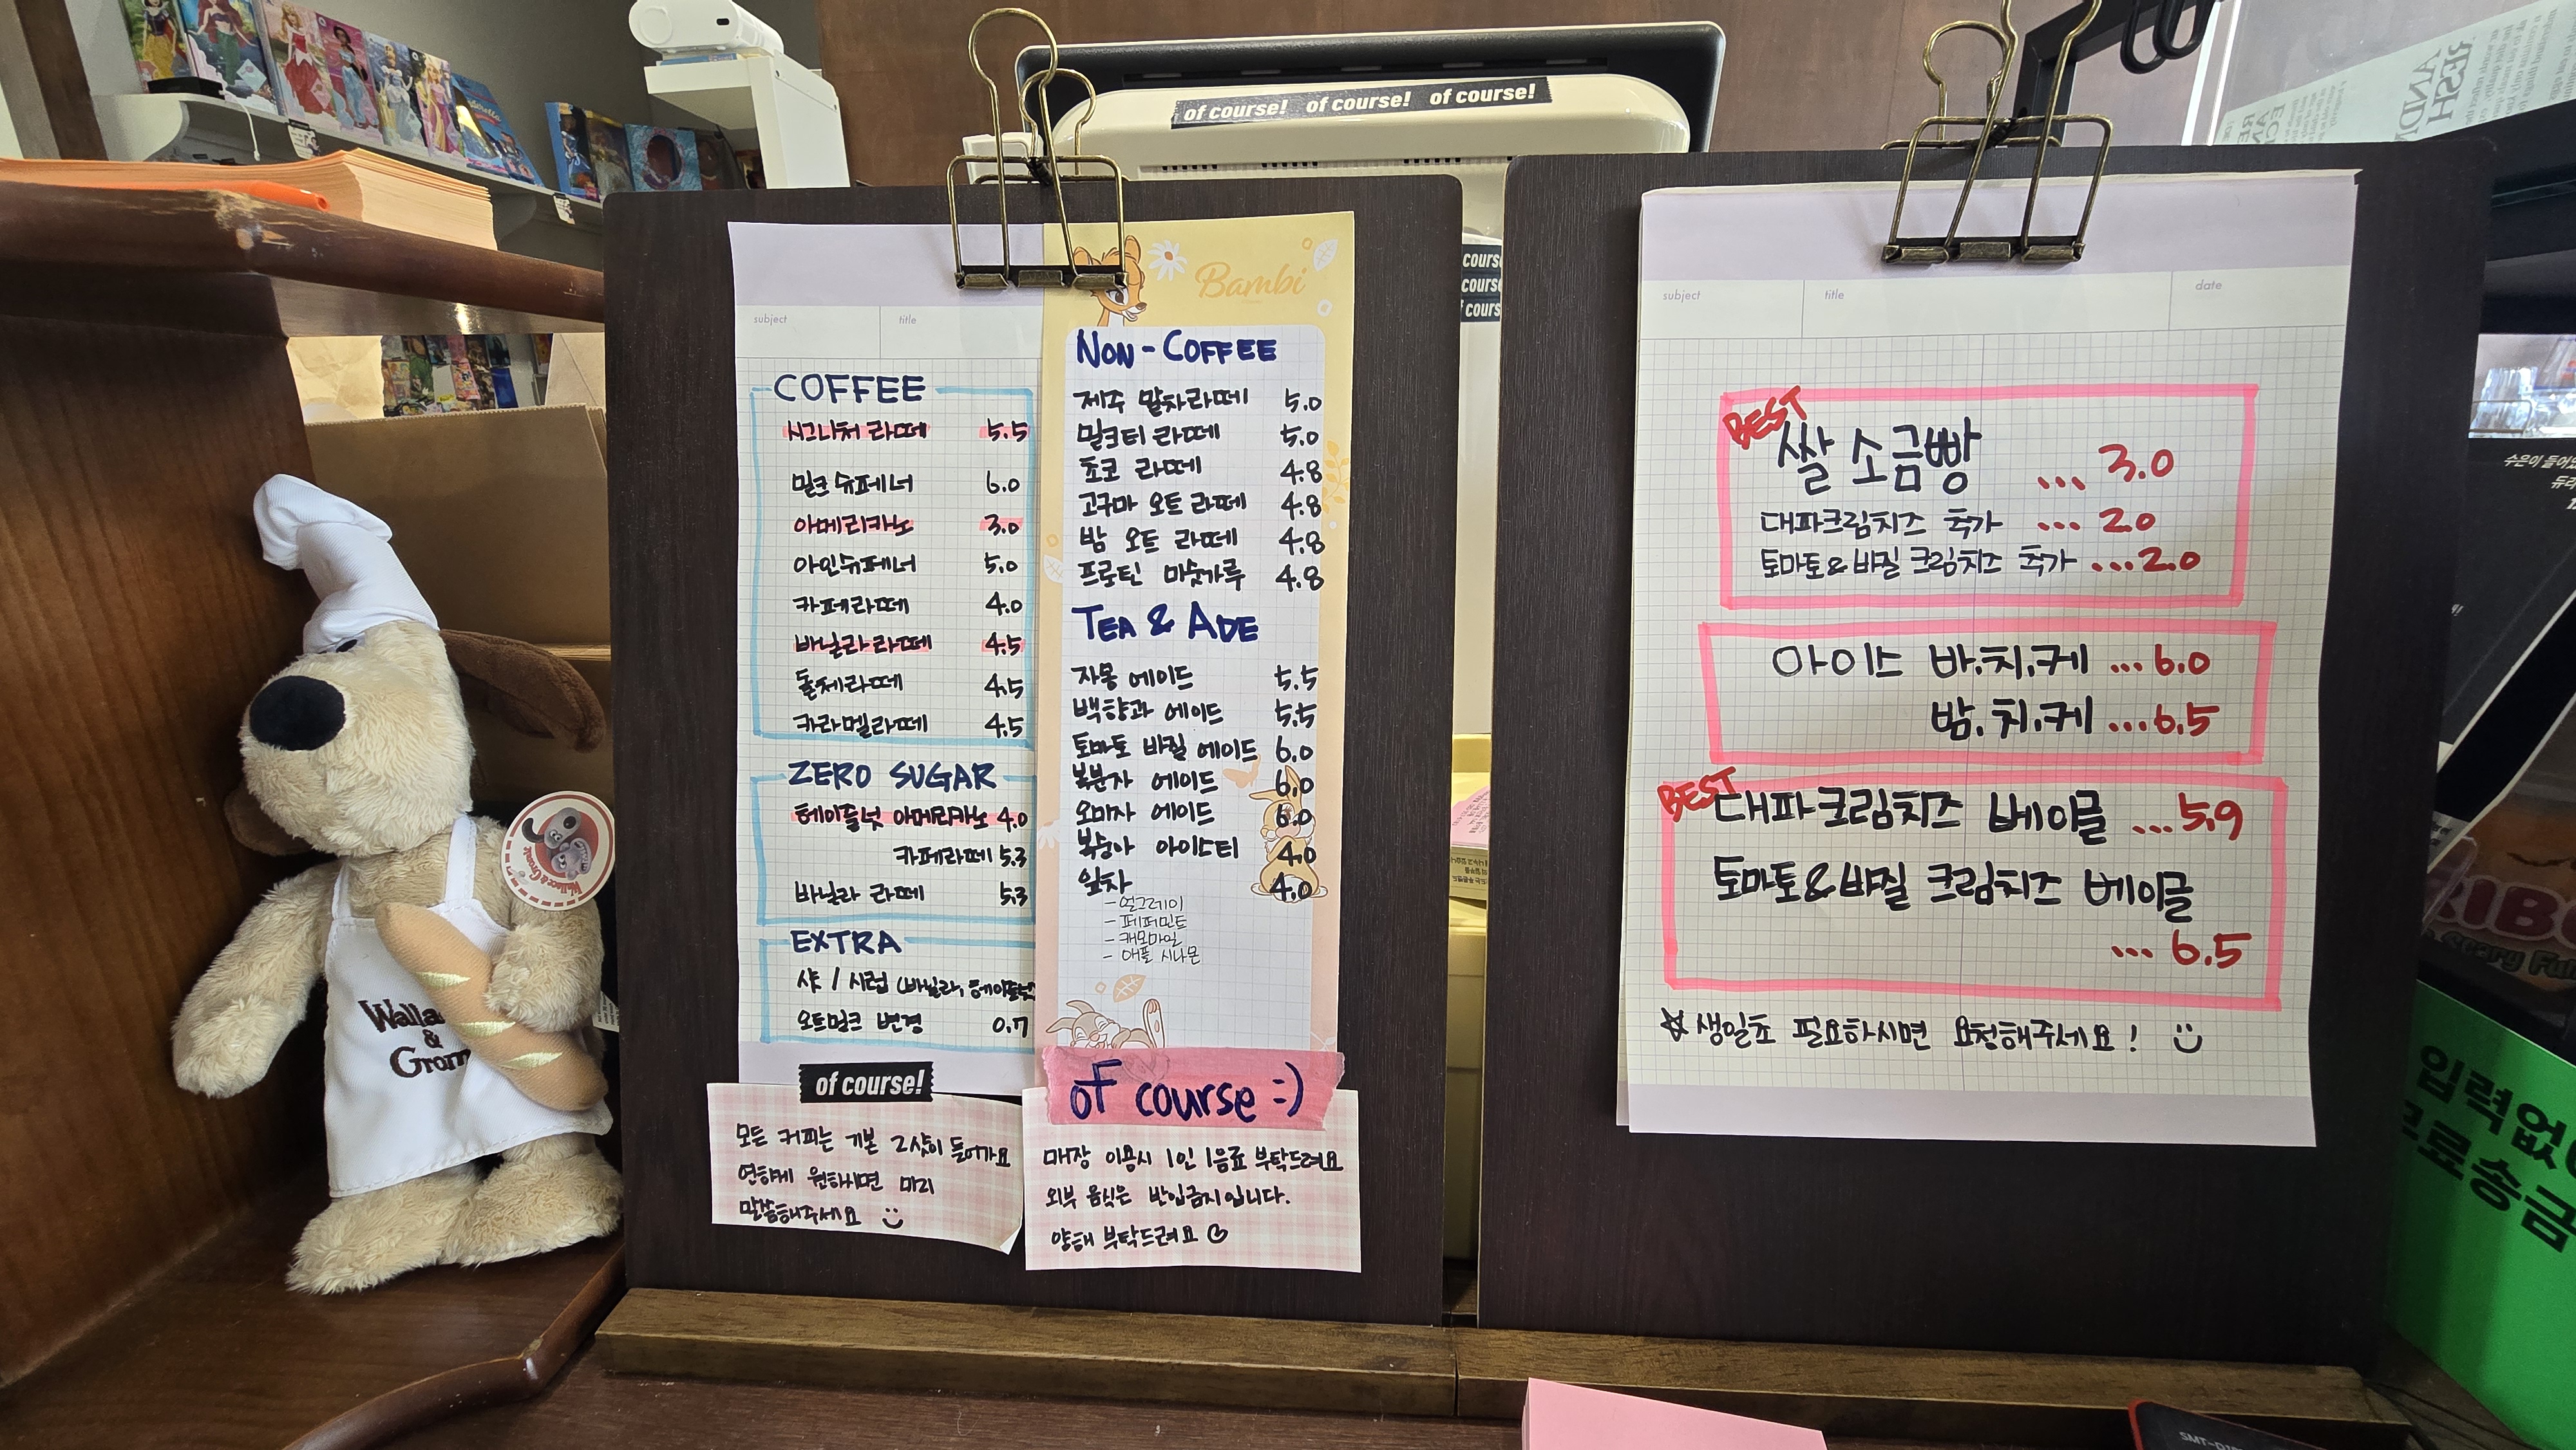 of course! of course! of course!
subject title
COFFEE
시그니처 라떼 5.5
밀크 슈페너 6.0
아메리카노 3.0
아인슈페너 5.0
카페라떼 4.0
바닐라 라떼 4.5
돌체라떼 4.5
카라멜라떼 4.5
ZERO SUGAR
헤이즐넛 아메리카노 4.0
카페라떼 5.3
바닐라 라떼 5.3
EXTRA
샷 / 시럽 (바닐라, 헤이즐넛
오트밀크 변경 0.7
of course!
모든 커피는 기본 2샷이 들어가요
연하게 원하시면 미리
말씀해주세요
Bambi
NON-COFFEE
제주 말차라떼 5.0
밀크티 라떼 5.0
초코 라떼 4.8
고구마 오트 라떼 4.8
밤 오트 라떼 4.8
프로틴 미숫가루 4.8
TEA & ADE
자몽 에이드 5.5
백향과 에이드 5.5
토마토 바질 에이드 6.0
복분자 에이드 6.0
오미자 에이드 6.0
복숭아 아이스티 4.0
잎차 4.0
- 얼그레이
- 페퍼민트
- 캐모마일
- 애플 시나몬
of course :)
매장 이용시 1인 1음료 부탁드려요
외부 음식은 반입금지입니다.
양해 부탁드려요
course
course
f cours
subject title date
BEST
쌀 소금빵 ... 3.0
대파크림치즈 추가 ... 2.0
토마토&바질 크림치즈 추가 ... 2.0
아이스 바.치.케 ... 6.0
밤.치.케 ... 6.5
BEST
대파크림치즈 베이글 ... 5.9
토마토&바질 크림치즈 베이글
... 6.5
☆ 생일초 필요하시면 요청해주세요!
Walla
&
Grom
Wallace & Gromit
수은이 들어
입력없
료송금